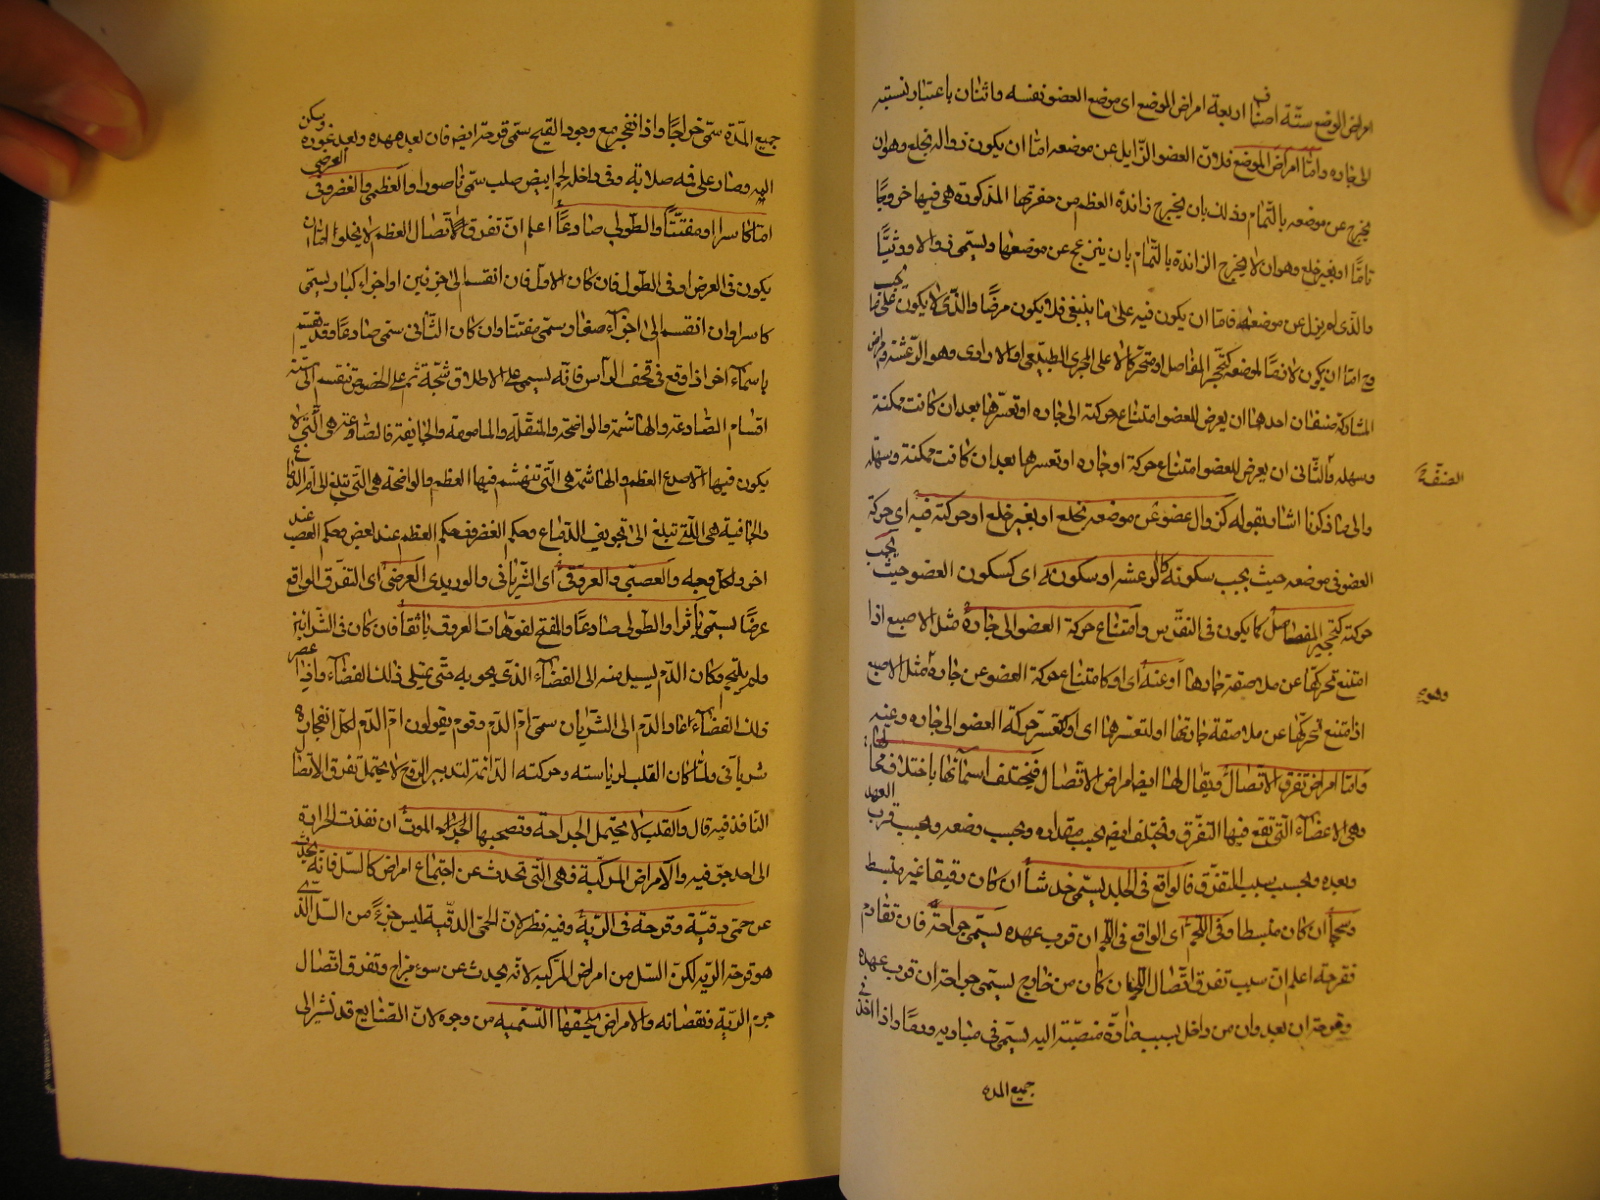 امراض الوضع ستّة اصنا ف اربعة امراض الموضع اى موضع العضو نفسه واثنان باعتبار نسبته
الى جاره وامّا امراض الموضع فلانّ العضو الزّايل عن موضعه امّا ان يكون زواله بخلع وهو ان
يخرج عن موضعه بالتّمام وذلك بان يخرج زائدة العظم من حفرتها المذكورة هى فيها خروجًا
تامًّا او بغير خلع وهو ان لا يخرج الزائدة بالتّمام بان ينزعج عن موضعها ويسمى زوالا ووثيًّا
والّذى لم يزل عن موضعه فامّا ان يكون فيه على ما ينبغى فلا يكون مرضًا والّذى لا يكون على ما يجب
وح امّا ان يكون لازمًا لموضعه كتحجّر المفاصل او متحركا لا على المجرى الطبيعى او الارادى وهو الرّعشة وامراض
المشاركة صنفان احدهما ان يعرض للعضو امتناع حركته الى جاره او تعسّرها بعد ان كانت ممكنة
وسهله والثّانى ان يعرض للعضو امتناع حركة او جاره او تعسرها بعد ان كانت ممكنة وسهله
الصنفة
والى ما ذكرنا اشار بقوله كزوال عضو عن موضعه بخلع او بغير خلع او حركته فيه اى حركة
العضو فى موضعه حيث يجب سكونه كالرعشه او سكونه اى كسكون العضو حيث يجب
حركته كتحجر المفاصل كما يكون فى النقرس وامتناع حركة العضو الى جاره مثل الاصبع اذا
امتنع تحركها عن ملاصقة جارها او عنه اى او كامتناع حركة العضو عن جاره مثل الاصبع
وهو
اذا متنع تحركها عن ملاصقة جارتها او لتعسرها اى او كتعسر حركة العضو الى جاره وعنه
وامّا امراض تفرق الاتّصال ويقال لها ايضا امراض الاتّصال فيختلف اسمآئها باختلاف محالها
وهى الاعضاء الّتى تقع فيها التفرّق ويختلف ايض بحسب مقداره وبحسب وضعه وبحسب قرب العهد
وبعده وبحسب سبب المتفرّق فالواقع فى الجلد يسمّى خدشاً ان كان دقيقا غير منبسط
وسحجاً ان كان منبسطا وفى اللّحم اى الواقع فى اللّحم ان قرب عهده يسمّى جراحة فان تقادم
فقرحة اعلم ان سبب تفرق اتّصال اللّحم ان كان من خارج يسمى جراحة ان قرب عهده
وقرحة ان بعد وان من داخل بسبب مادّة منصبّة اليه يسمّى فى مباديه ورمًا واذا اخذ فى
جميع المده
جميع المدّة سمّى خراجًا واذا انفجر مع وجود القيح سمّى قرحة ايض فان بعد عهده وبعد غوره ويكن
اليه وصار على فمه صلابة وفى داخله لحم ابيض صلب سمّى ناصورا والعظمى والغضروفى العرضى
امّا كاسرا او مفتّتاً والطّولى صادعاً اعلم انّ تفرق اتّصال العظم لا يخلوا امّا ان
يكون فى العرض او فى الطّول فان كان الاوّل فان انقسم الى جزئين او اجزاء كبار يسمّى
كاسرا وان انقسم الى اجزآء صغار يسمّى مفتتّا وان كان الثّانى سمّى صادعًا وقد يقسّم
باسمآء اخر اذا وقع فى قحف الرّأس فانّه يسمى على الاطلاق شجّة ثمّ على الخصوص تنقسم الى ستة
اقسام الصّادعة والهاشمة والواضحة والمنقّلة والمامومة والجايفة فالصّادعة هى الّتى لا
يكون فيها الّا صدع العظم والهاشمة هى الّتى تنهشم فيها العظم والواضحة هى الّتى تبلغ الى امّ الدّماغ
والجايفة هى اللّتى تبلغ الى تجويف الدّماغ وحكم الغضروف حكم العظم عند بعض وحكم العصب عند
اخر ولكلّ وجه والعصبّى والعروقى اى الشّريانى والوريدى العرضى اى التفرّق الواقع
عرضًا يسمّى باترا والطّولى صادعًا والمفتح لفوهات العروق باثقاً فان كان فى الشّرائين
ولم يلتحم وكان الدّم يسيل منه الى الفضآء الّذى يحويه حتّى يمتلى ذلك الفضآء واذا عصر
ذلك الفضآء عاد الدّم الى الشّريان سمى امّ الدّم وقوم يقولون امّ الدّم لكلّ انفجار
شريانى ولمّا كان القلب لرياسته وحركته الدّائمة لتدبير الرّوح لا يحتمل تفرق الاتّصا
النّافذ فيه قال والقلب لا يحتمل الجراحة وتصحبها الموت ان نفذت الجراحة
الى احد جوفيه والامراض المركّبة فهى الّتى تحدث عن اجتماع امراض كالسّل فانّه يحدث
عن حمّى دقيّة وقرحة فى الرّية وفيه نظر لانّ الحمّى الدقيّة ليس جزءً من السّل الّذى
هو قرحة الريه لكنّ السّل من امراض المركبة لانّه يحدث عن سوء مزاج وتفرق اتّصال
جرم الريّة ونقصانه والامراض يلحقها التّسميه من وجوه لانّ الصّنايع قد تشير الى